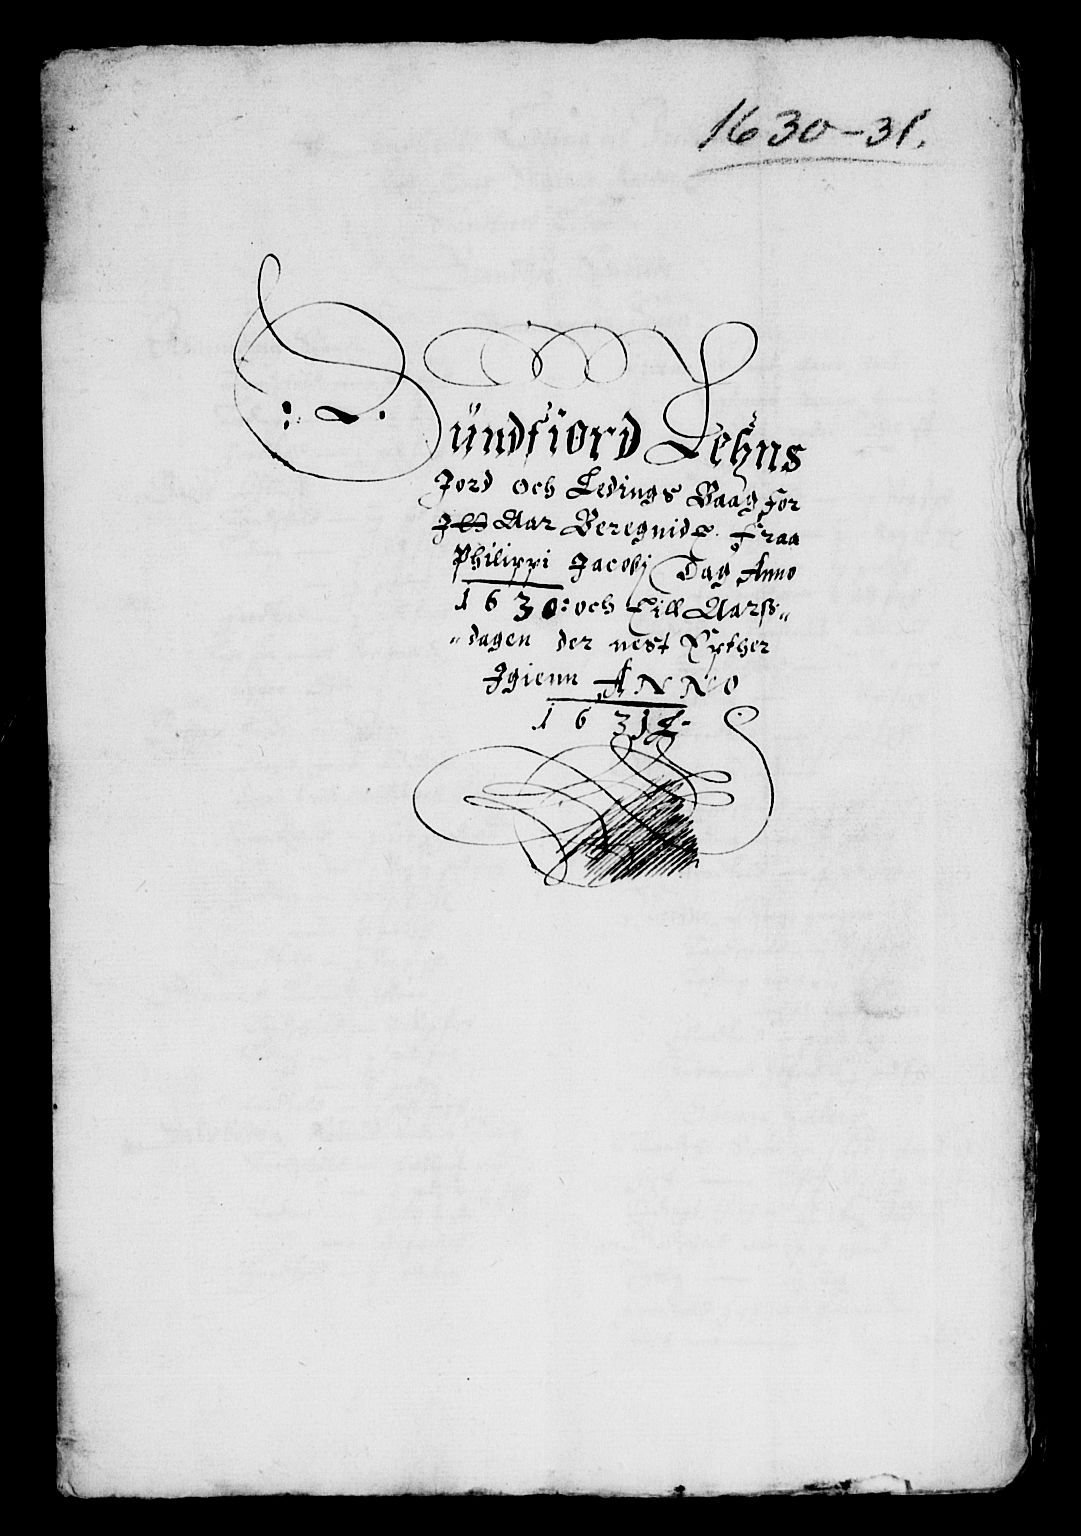 1630-31.
Sündfiord Lehns
Jord och Ledings Baag for
Itt Aar Beregnidt. Fraa
Philippi Jacobj Dag Anno
1630: och till Aarß„
„dagen der nest Epther
Igienn ANNO
1631